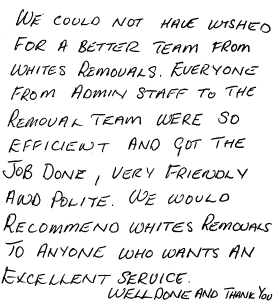 WE COULD NOT HAVE WISHED
FOR A BETTER TEAM FROM
WHITES REMOVALS. EVERYONE
FROM ADMIN STAFF TO THE
REMOVAL TEAM WERE SO
EFFICIENT AND GOT THE
JOB DONE, VERY FRIENDLY
AND POLITE. WE WOULD
RECOMMEND WHITES REMOVALS
TO ANYONE WHO WANTS AN
EXCELLENT SERVICE.
WELL DONE AND THANK YOU